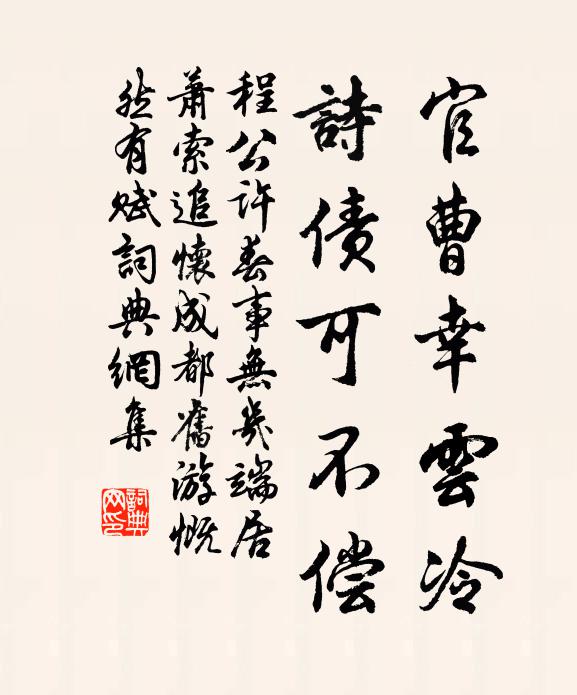 官曹幸雲冷
詩債可不偿
程公許春事無幾端居
蕭索追懷成都舊游慨
然有賦詞典網集
詞典网印